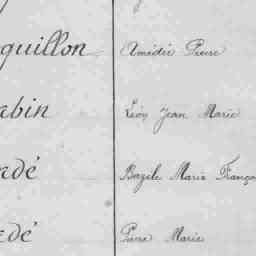 quillon Amédée Pierre
abin Léon Jean Marie
adé Bazile Marie Franço
edé Pierre Marie